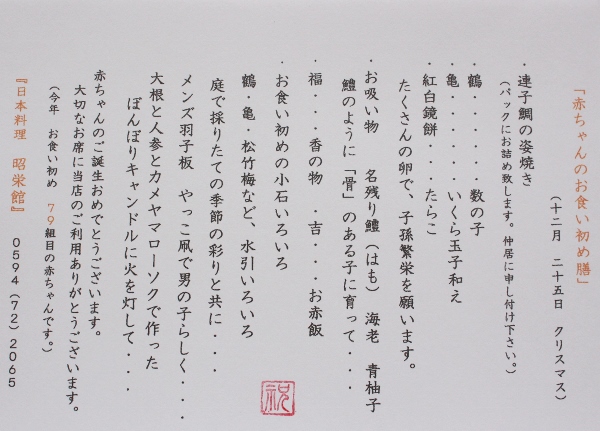 「赤ちゃんのお食い初め膳」
(十二月 二十五日 クリスマス)
・連子鯛の姿焼き
(パックにお詰め致します。仲居に申し付け下さい。)
・鶴・・・・・・数の子
・亀・・・・・・いくら玉子和え
・紅白鏡餅・・・たらこ
たくさんの卵で、子孫繁栄を願います。
・お吸い物 名残り鱧(はも) 海老 青柚子
鱧のように「骨」のある子に育って・・・・
・福・・・香の物 ・吉・・・お赤飯
・お食い初めの小石いろいろ
鶴・亀・松竹梅など、水引いろいろ
庭で採りたての季節の彩りと共に・・・
メンズ羽子板 やっこ凧で男の子らしく・・・・
大根と人参とカメヤマローソクで作った
ぼんぼりキャンドルに火を灯して・・・
赤ちゃんのご誕生おめでとうございます。
大切なお席に当店のご利用ありがとうございます。
(今年 お食い初め 79組目の赤ちゃんです。)
『日本料理 昭栄館』 0594(72)2065
祝